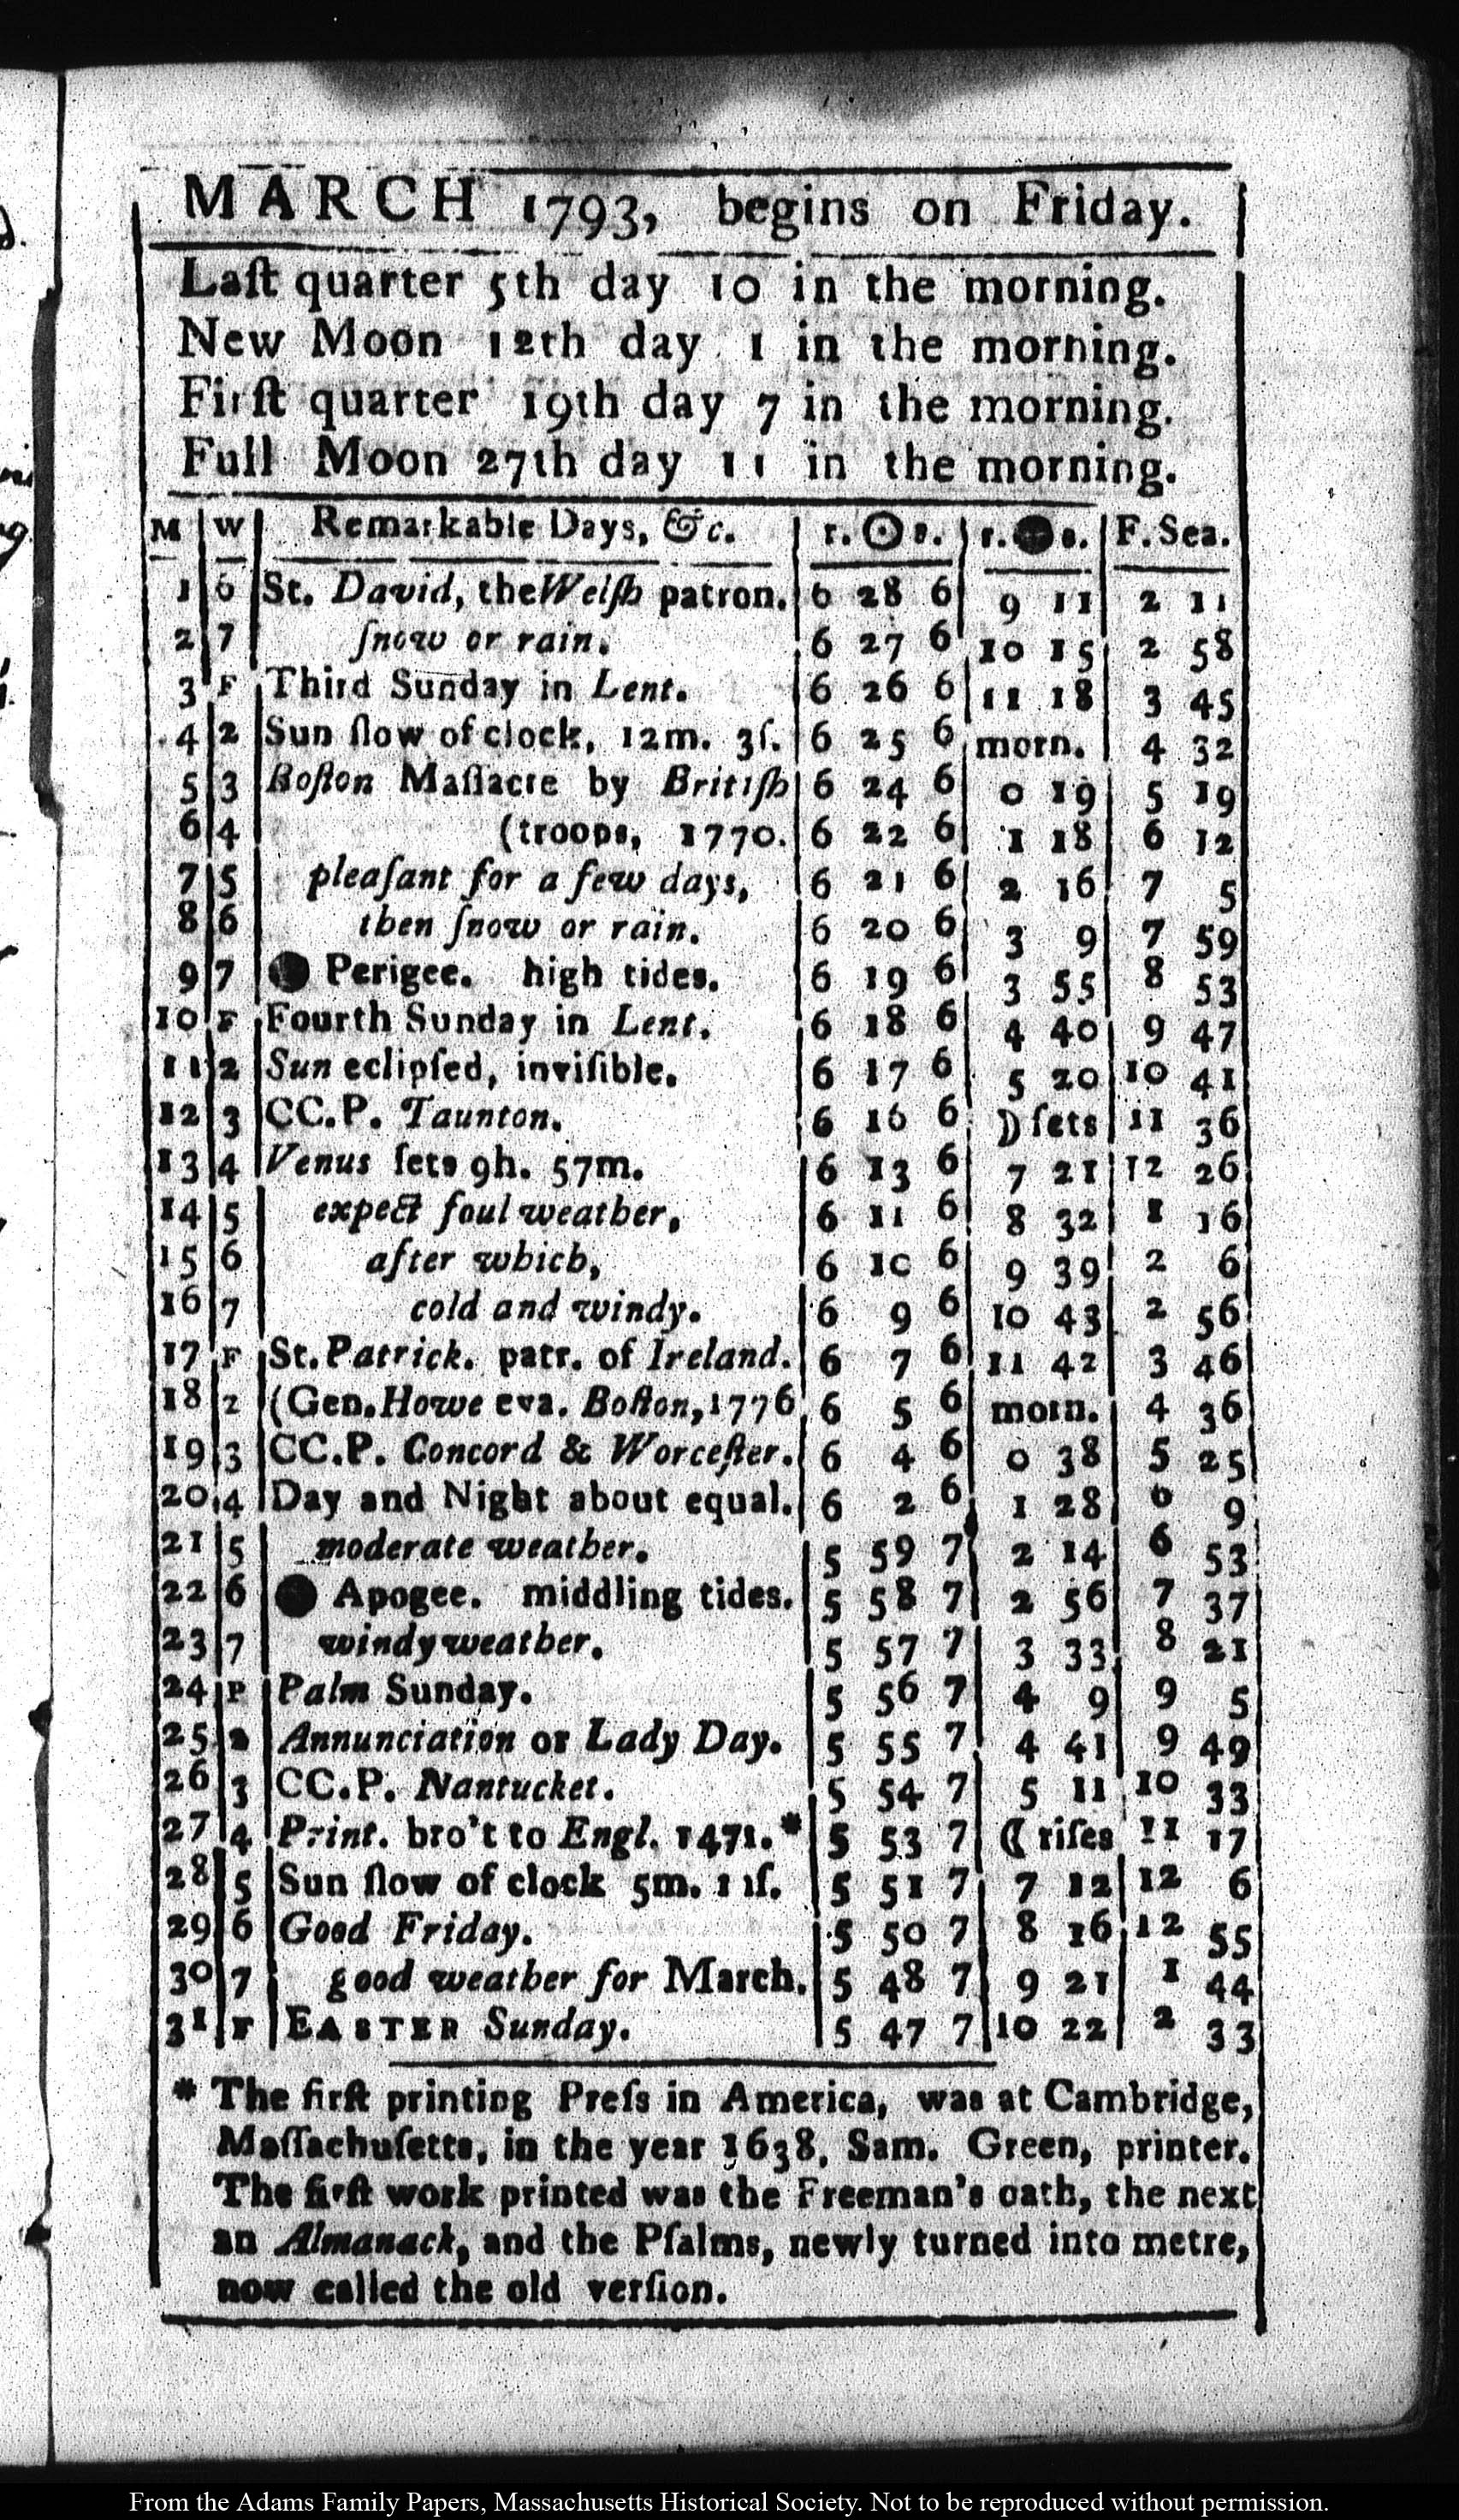 MARCH 1793, begins on Friday.
Laſt quarter 5th day 10 in the morning.
New Moon 12th day 1 in the morning.
Firſt quarter 19th day 7 in the morning.
Full Moon 27th day 11 in the morning.
M W Remarkable Days, &c. r. ☉ s. r. ● s. F. Sea.
1 6 St. David, the Welſh patron. 6 28 6 9 11 2 11
2 7 ſnow or rain. 6 27 6 10 15 2 58
3 F Third Sunday in Lent. 6 26 6 11 18 3 45
4 2 Sun ſlow of clock, 12m. 3ſ. 6 25 6 morn. 4 32
5 3 Boſton Maſſacre by Britiſh 6 24 6 0 19 5 19
6 4 (troops, 1770. 6 22 6 1 18 6 12
7 5 pleaſant for a few days, 6 21 6 2 16 7 5
8 6 then ſnow or rain. 6 20 6 3 9 7 59
9 7 ● Perigee. high tides. 6 19 6 3 55 8 53
10 F Fourth Sunday in Lent. 6 18 6 4 40 9 47
11 2 Sun eclipſed, inviſible. 6 17 6 5 20 10 41
12 3 CC.P. Taunton. 6 16 6 ☽ ſets 11 36
13 4 Venus ſets 9h. 57m. 6 13 6 7 21 12 26
14 5 expect foul weather, 6 11 6 8 32 1 16
15 6 after which, 6 10 6 9 39 2 6
16 7 cold and windy. 6 9 6 10 43 2 56
17 F St. Patrick. patr. of Ireland. 6 7 6 11 42 3 46
18 2 (Gen. Howe eva. Boſton, 1776 6 5 6 morn. 4 36
19 3 CC.P. Concord & Worceſter. 6 4 6 0 38 5 25
20 4 Day and Night about equal. 6 2 6 1 28 6 9
21 5 moderate weather. 5 59 7 2 14 6 53
22 6 ● Apogee. middling tides. 5 58 7 2 56 7 37
23 7 windy weather. 5 57 7 3 33 8 21
24 F Palm Sunday. 5 56 7 4 9 9 5
25 2 Annunciation or Lady Day. 5 55 7 4 41 9 49
26 3 CC.P. Nantucket. 5 54 7 5 11 10 33
27 4 Print. bro't to Engl. 1471.* 5 53 7 ☾ riſes 11 17
28 5 Sun ſlow of clock 5m. 11ſ. 5 51 7 7 12 12 6
29 6 Good Friday. 5 50 7 8 16 12 55
30 7 good weather for March. 5 48 7 9 21 1 44
31 F EASTER Sunday. 5 47 7 10 22 2 33
* The firſt printing Preſs in America, was at Cambridge,
Maſſachuſetts, in the year 1638, Sam. Green, printer.
The firſt work printed was the Freeman's oath, the next
an Almanack, and the Pſalms, newly turned into metre,
now called the old verſion.
From the Adams Family Papers, Massachusetts Historical Society. Not to be reproduced without permission.